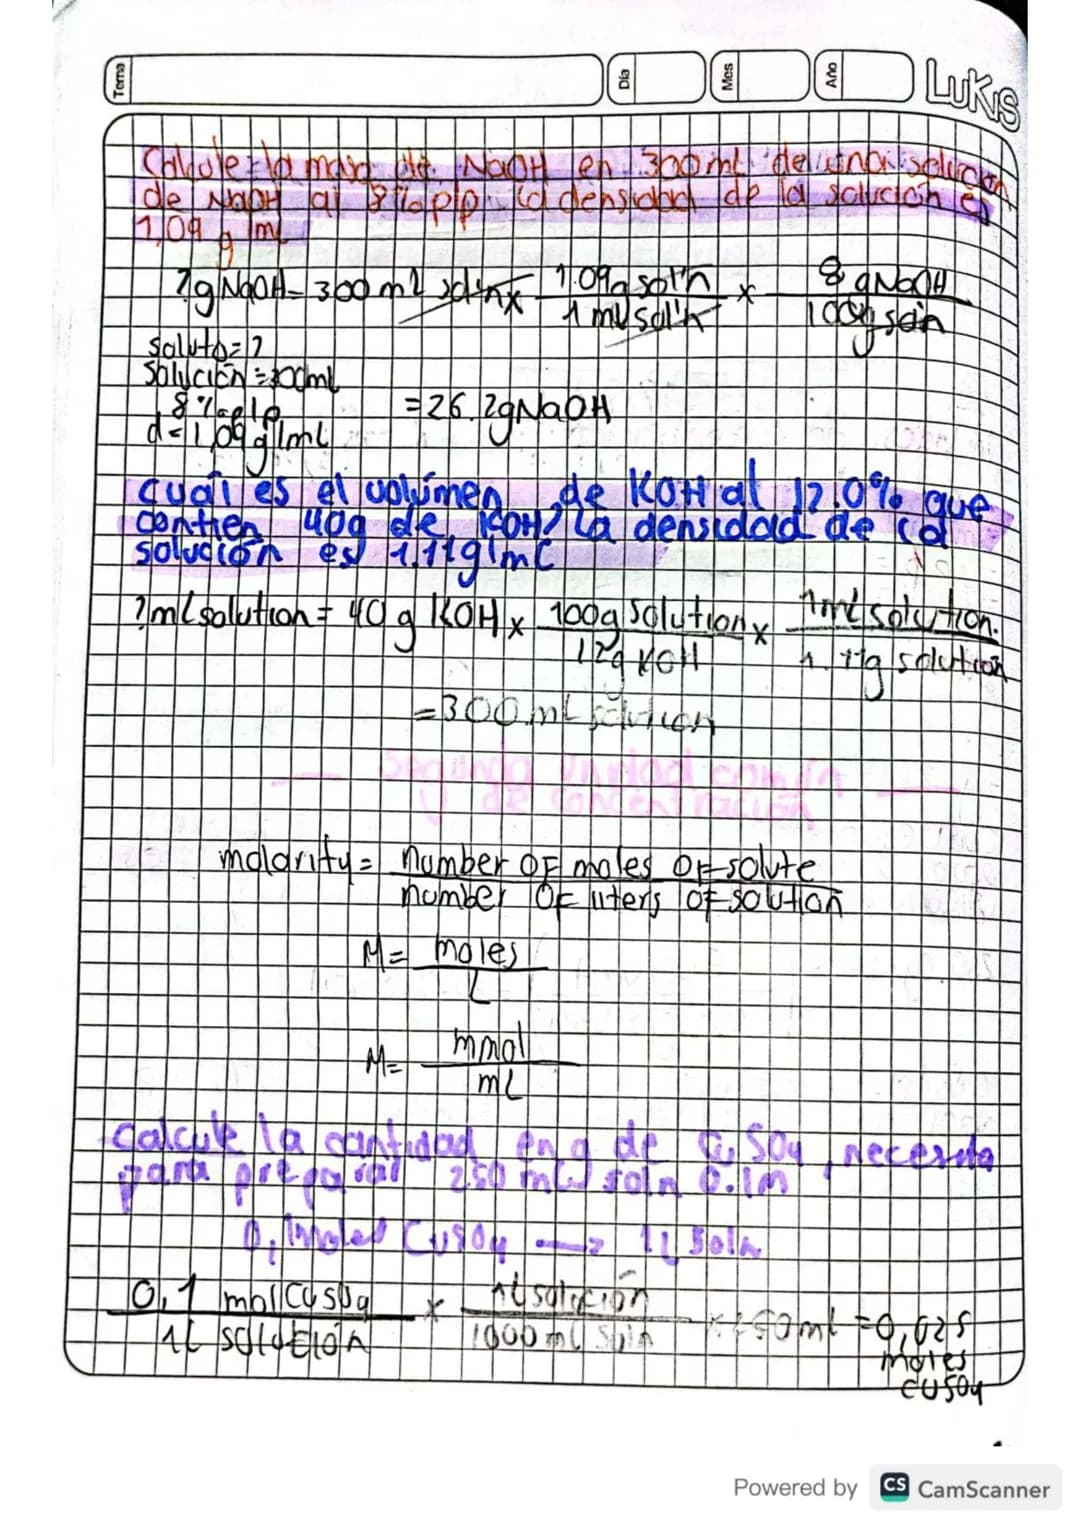 Tema Día Mes Año LuKIS
Calcule la masa de NaOH en 300ml de una solución
de NaOH al 8% p/p la densidad de la solución es
1,09 g/ml
?gNaOH= 300ml sol'n x 1.09g sol'n / 1 ml sol'n x 8 gNaOH / 100g soln
soluto=?
Solución=300ml
8% p/p
d=1,09g/mL
=26.2gNaOH
cuál es el volúmen de KOH al 12.0% que
contien 40g de KOH? La densidad de la
solución es 1.11g/mL
?mL solution = 40 g KOH x 100g solution / 12g KOH x 1mL solution. / 1.11g solution
=300 mL solution
segunda unidad común
de concentración
molarity = number OF moles OF solute / number OF liters OF solution
M= moles / L
M= mmol / mL
calcule la cantidad en g de CuSO4, necesita
para preparar 250 mL soln 0.1M
0,1moles CuSO4 → 1L soln
0,1 mol CuSO4 / 1L SOLUCIÓN x 1L solución / 1000 mL soln x 250ml = 0,025
moles
CuSO4
Powered by CS CamScanner